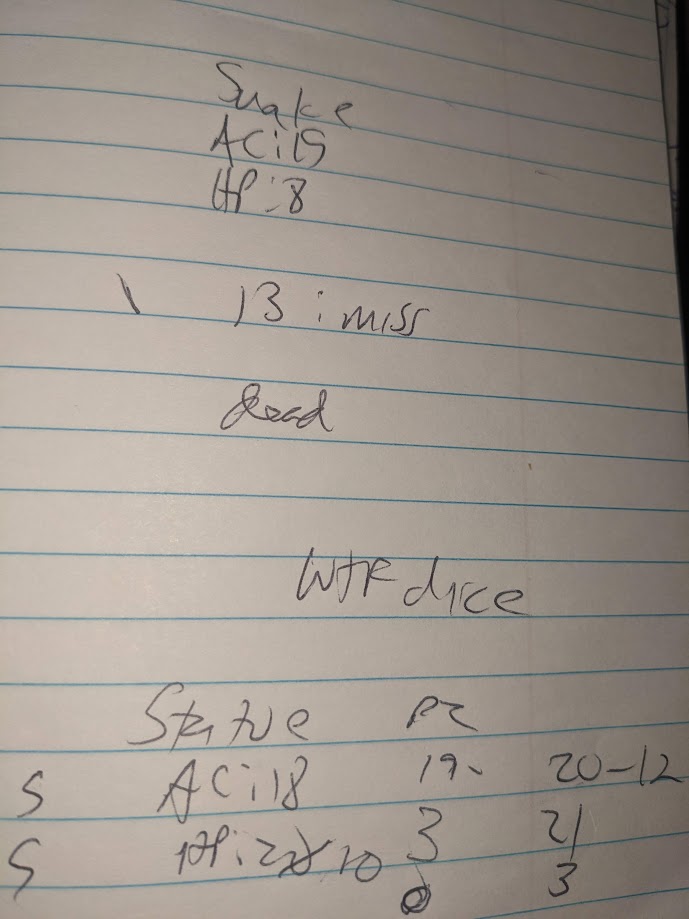 Snake
AC:15
HP:8
\ 13:miss
dead
WTF dice
Statue PC
S AC:18 19- 20-12
S HP: 10 3 21
0 3